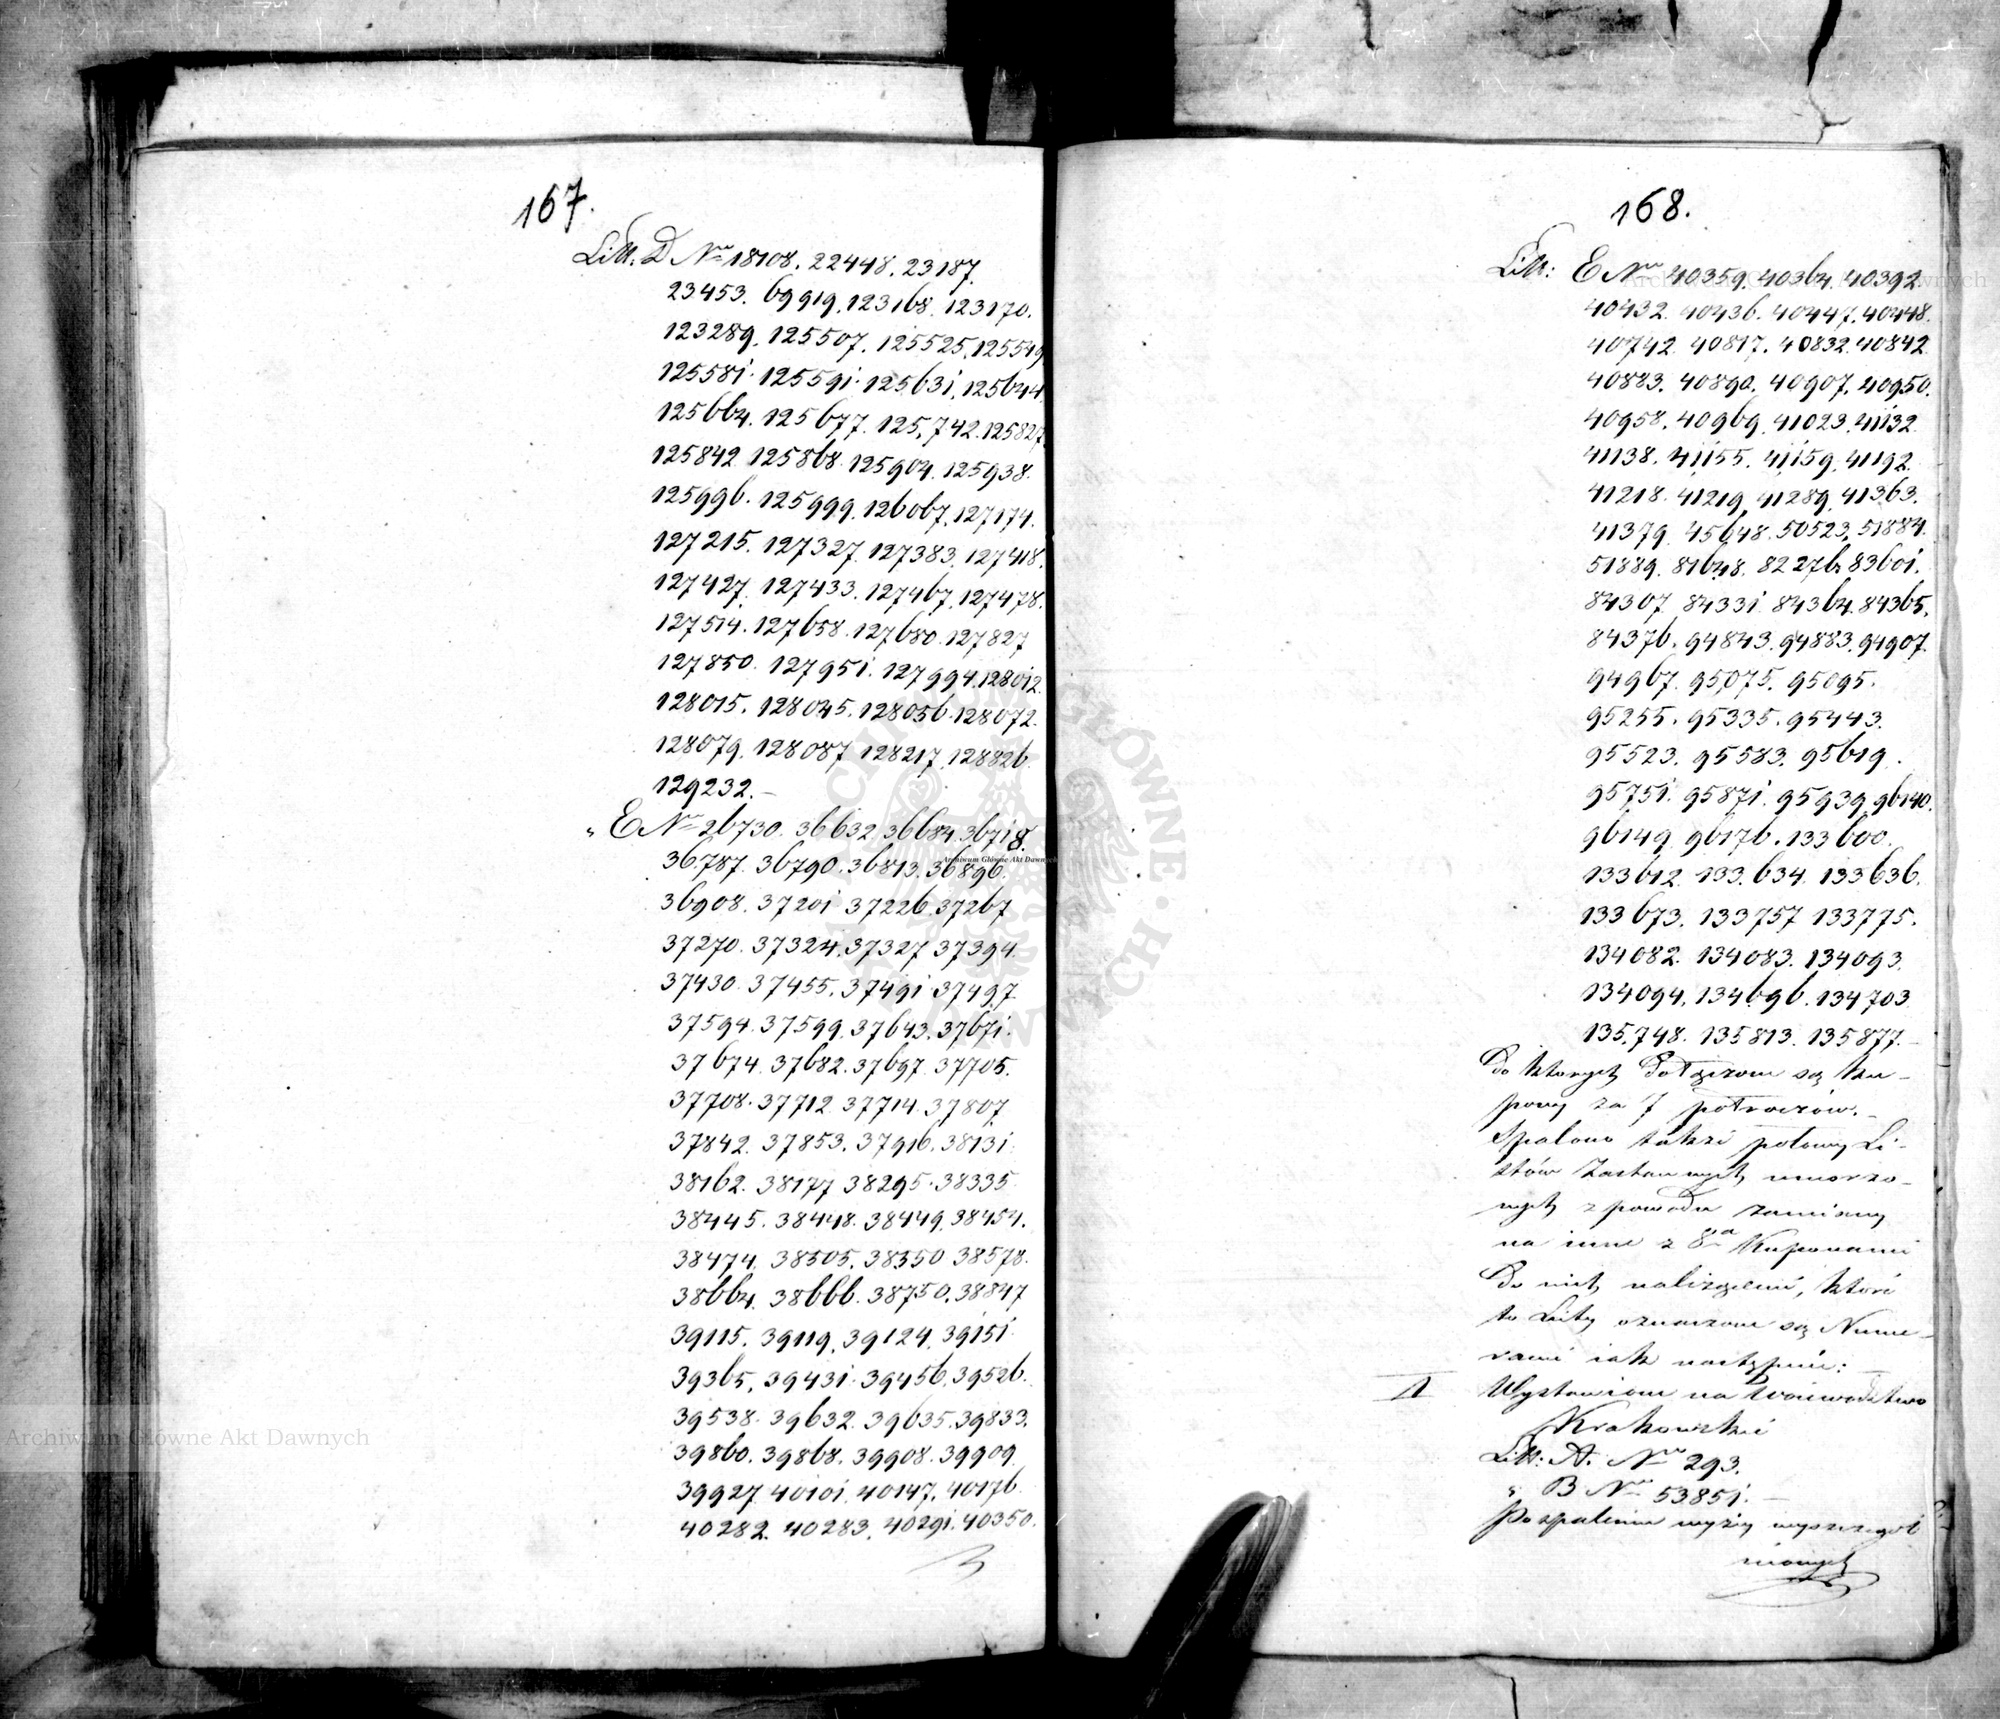 167.
Litt. D Nro 18108. 22448. 23187.
23453. 69919. 123168. 123170.
123289. 125507. 125525. 125549
125581. 125591. 125631. 125644.
125664. 125677. 125,742. 125827
125842 125868. 125904. 125938.
125996. 125999. 126067. 127174.
127215. 127327. 127383. 127418.
127427. 127433. 127467. 127478.
127514. 127658. 127680. 127827
127850. 127951. 127994. 128012.
128015. 128045. 128056. 128072.
128079. 128087 128217. 128826.
129232.—
„ E Nro 26730. 36632. 36684. 36718.
36787. 36790. 36813. 36896.
36908. 37201 37226. 37267
37270. 37324. 37327 37394.
37430. 37455. 37491. 37497.
37594. 37599. 37643. 37671.
37674. 37682. 37697. 37705.
37708. 37712. 37714. 37807.
37842. 37853. 37916. 38131.
38162. 38177 38295. 38335.
38445. 38448. 38449. 38454.
38474. 38505. 38550 38578.
38664. 38666. 38750. 38847
39115. 39119. 39124. 39151.
39365. 39431. 39456. 39526.
39538. 39632. 39635. 39833.
39860. 39868. 39908. 39909.
39927 40101. 40147. 40176.
40282. 40283. 40291. 40350.
168.
Litt: E Nro 40359. 40364. 40392.
40432. 40436. 40447. 40448.
40742. 40817. 40832. 40842.
40883. 40890. 40907. 40950.
40958. 40969. 41023. 41132.
41138. 41155. 41159. 41192.
41218. 41219. 41289. 41363.
41379. 45648. 50523. 51884.
51889. 81648. 82276. 83601.
84307 84331. 84364. 84365.
84376. 94843. 94883. 94907.
94967. 95075. 95095.
95255. 95335. 95443.
95523. 95583. 95619.
95751. 95871. 95939. 96140.
96149. 96176. 133600.
133612. 133.634. 133636.
133673. 133757 133775.
134082. 134083. 134093.
134094. 134696. 134703.
135,748. 135813. 135877.—
Do których dołączone są Ku-
pony za 7 półroczów.—
Spalono także połowy Li-
stów Zastawnych umorzo-
nych z powodu zamiany
na inne z 8ma Kuponami
do nich należącemi, które
to Listy oznaczone są Nume-
rami jak następuie:
A Wystawione na Woiewództwo
Krakowskie
Litt: A. Nro 293.
„ B. Nro 53851.—
Po spaleniu wyżey wyszczegól
nionych
Archiwum Główne Akt Dawnych
Archiwum Główne Akt Dawnych
Archiwum Główne Akt Dawnych
ARCHIWUM GŁÓWNE AKT DAWNYCH